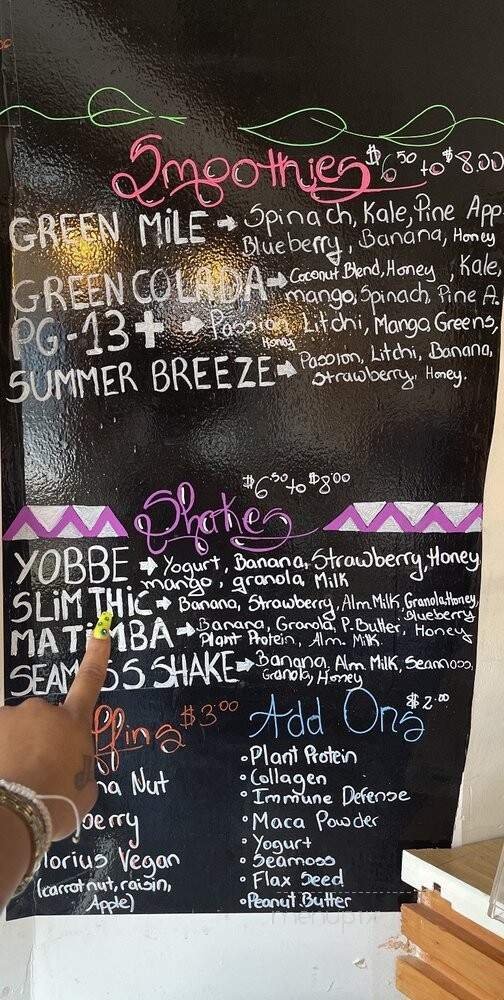 Smoothies $6.50 to $8.00
GREEN MiLE → Spinach, Kale, Pine App
Blueberry, Banana, Honey
GREEN COLADA → Coconut Blend, Honey, Kale,
mango, Spinach, Pine A.
PG-13+ → Passion, Litchi, Mango, Greens,
Honey
SUMMER BREEZE → Passion, Litchi, Banana,
Strawberry, Honey.
$6.50 to $8.00
Shakes
YOBBE → Yogurt, Banana, Strawberry, Honey,
mango, granola Milk
SLiM THiC → Banana, Strawberry, Alm Milk, Granola, Honey,
Blueberry
MATiMBA → Banana, Granola, P. Butter, Honey
Plant Protein, Alm. Milk
SEAM SS SHAKE → Banana, Alm Milk, Seamoss,
Granola, Honey
ffins $3.00
na Nut
berry
lorius Vegan
(carrot nut, raisin,
Apple)
Add Ons $2.00
• Plant Protein
• Collagen
• Immune Defense
• Maca Powder
• Yogurt
• Seamoss
• Flax Seed
• Peanut Butter